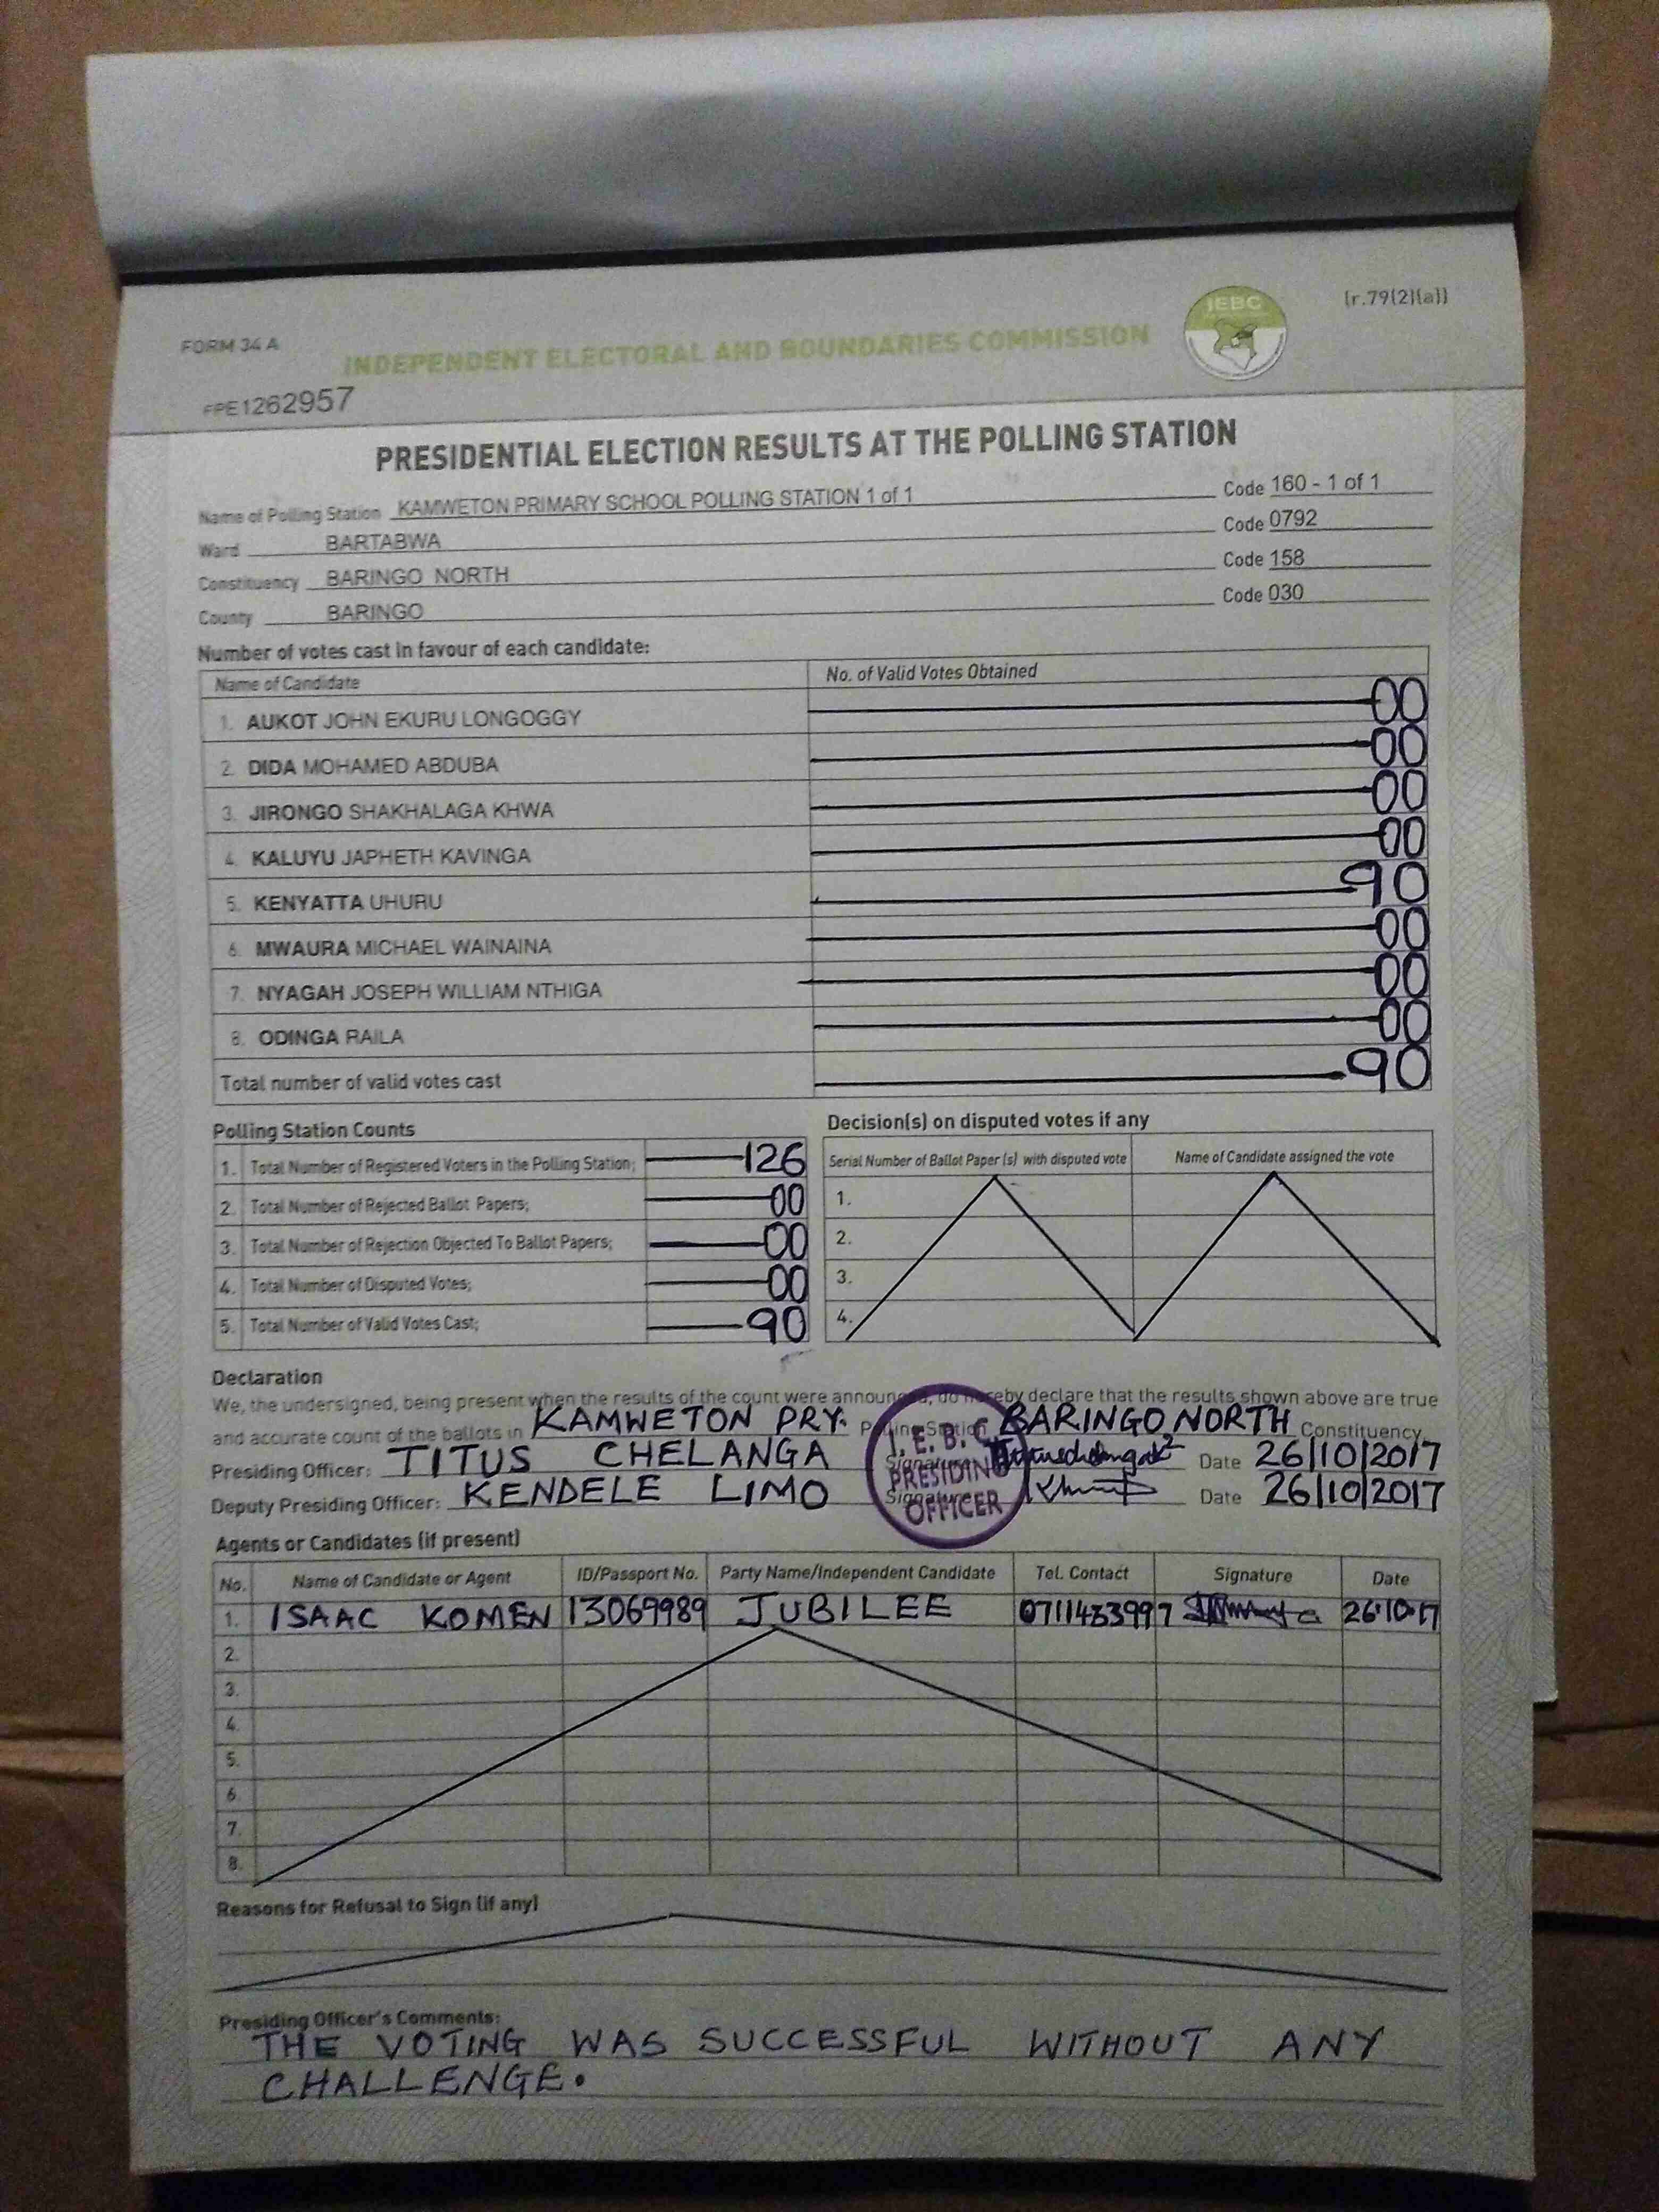 [r.79(2)(a)]
FORM 34 A
IEBC
INDEPENDENT ELECTORAL AND BOUNDARIES COMMISSION
FPE1262957
PRESIDENTIAL ELECTION RESULTS AT THE POLLING STATION
Name of Polling Station KAMWETON PRIMARY SCHOOL POLLING STATION 1 of 1 Code 160 - 1 of 1
Ward BARTABWA Code 0792
Constituency BARINGO NORTH Code 158
County BARINGO Code 030
Number of votes cast in favour of each candidate:
Name of Candidate No. of Valid Votes Obtained
1. AUKOT JOHN EKURU LONGOGGY 00
2. DIDA MOHAMED ABDUBA 00
3. JIRONGO SHAKHALAGA KHWA 00
4. KALUYU JAPHETH KAVINGA 00
5. KENYATTA UHURU 90
6. MWAURA MICHAEL WAINAINA 00
7. NYAGAH JOSEPH WILLIAM NTHIGA 00
8. ODINGA RAILA 00
Total number of valid votes cast 90
Polling Station Counts
1. Total Number of Registered Voters in the Polling Station; 126
2. Total Number of Rejected Ballot Papers; 00
3. Total Number of Rejection Objected To Ballot Papers; 00
4. Total Number of Disputed Votes; 00
5. Total Number of Valid Votes Cast; 90
Decision(s) on disputed votes if any
Serial Number of Ballot Paper (s) with disputed vote Name of Candidate assigned the vote
1.
2.
3.
4.
Declaration
We, the undersigned, being present when the results of the count were announced, do hereby declare that the results shown above are true
and accurate count of the ballots in KAMWETON PRY. Polling Station BARINGO NORTH Constituency
Presiding Officer: TITUS CHELANGA Signature Date 26/10/2017
Deputy Presiding Officer: KENDELE LIMO Signature Date 26/10/2017
I. E. B. C
PRESIDING
OFFICER
Agents or Candidates (if present)
No. Name of Candidate or Agent ID/Passport No. Party Name/Independent Candidate Tel. Contact Signature Date
1. ISAAC KOMEN 13069989 JUBILEE 26.10.17
2.
3.
4.
5.
6.
7.
8.
Reasons for Refusal to Sign (if any)
Presiding Officer's Comments:
THE VOTING WAS SUCCESSFUL WITHOUT ANY
CHALLENGE.